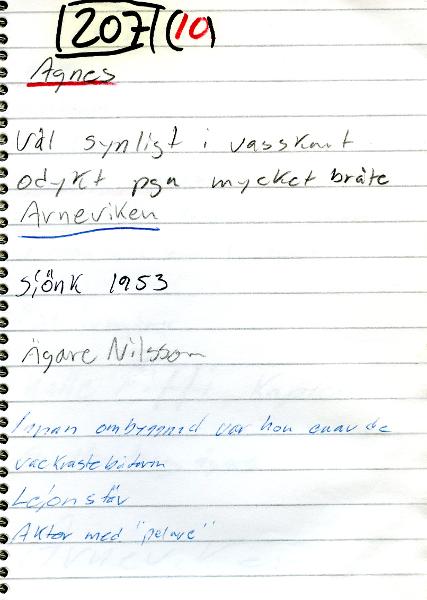 207 (10)
Agnes
Väl synligt i vasskant
odykt pga mycket bråte
Arneviken
sjönk 1953
Ägare Nilsson
Innan ombyggnad var hon en av de
vackraste båtarna
Lejonstäv
Aktor med "pelare"